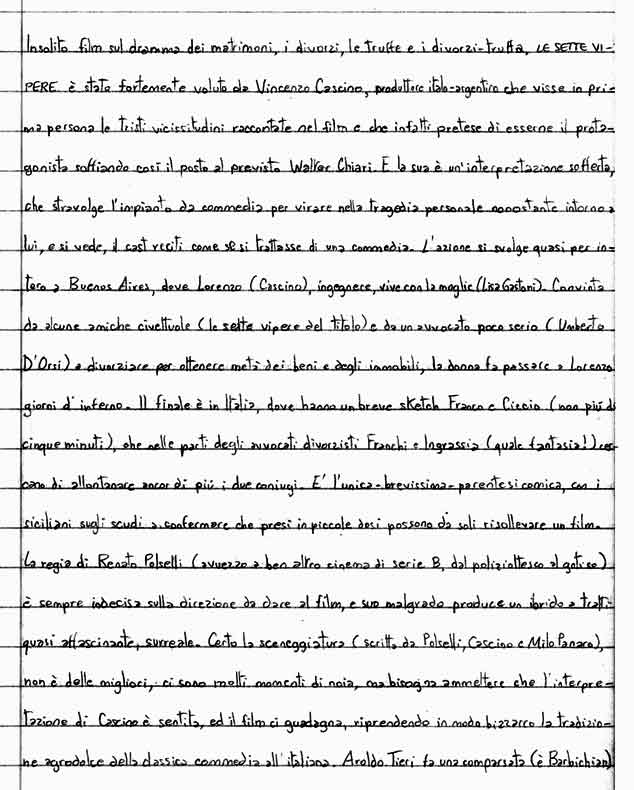 Insolito film sul dramma dei matrimoni, i divorzi, le truffe e i divorzi-truffa, LE SETTE VI-
PERE è stato fortemente voluto da Vincenzo Cascino, produttore italo-argentino che visse in pri-
ma persona le tristi vicissitudini raccontate nel film e che infatti pretese di esserne il prota-
gonista soffiando così il posto al previsto Walter Chiari. E la sua è un'interpretazione sofferta,
che stravolge l'impianto da commedia per virare nella tragedia personale nonostante intorno a
lui, e si vede, il cast reciti come se si trattasse di una commedia. L'azione si svolge quasi per in-
tero a Buenos Aires, dove Lorenzo (Cascino), ingegnere, vive con la moglie (Lisa Gastoni). Convinta
da alcune amiche civettuole (le sette vipere del titolo) e da un avvocato poco serio (Umberto
D'Orsi) a divorziare per ottenere metà dei beni e degli immobili, la donna fa passare a Lorenzo
giorni d'inferno. Il finale è in Italia, dove hanno un breve sketch Franco e Ciccio (non più di
cinque minuti), che nelle parti degli avvocati divorzisti Franchi e Ingrassia (quale fantasia!) cer-
cano di allontanare ancor di più i due coniugi. E' l'unica-brevissima-parentesi comica, con i
siciliani sugli scudi a confermare che presi in piccole dosi possono da soli risollevare un film.
La regia di Renato Polselli (avvezzo a ben altro cinema di serie B, dal poliziottesco al gotico)
è sempre indecisa sulla direzione da dare al film, e suo malgrado produce un ibrido a tratti
quasi affascinante, surreale. Certo la sceneggiatura (scritta da Polselli, Cascino e Milo Panaro),
non è delle migliori, ci sono molti momenti di noia, ma bisogna ammettere che l'interpre-
tazione di Cascino è sentita, ed il film ci guadagna, riprendendo in modo bizzarro la tradizio-
ne agrodolce della classica commedia all'italiana. Aroldo Tieri fa una comparsata (è Barbichian)